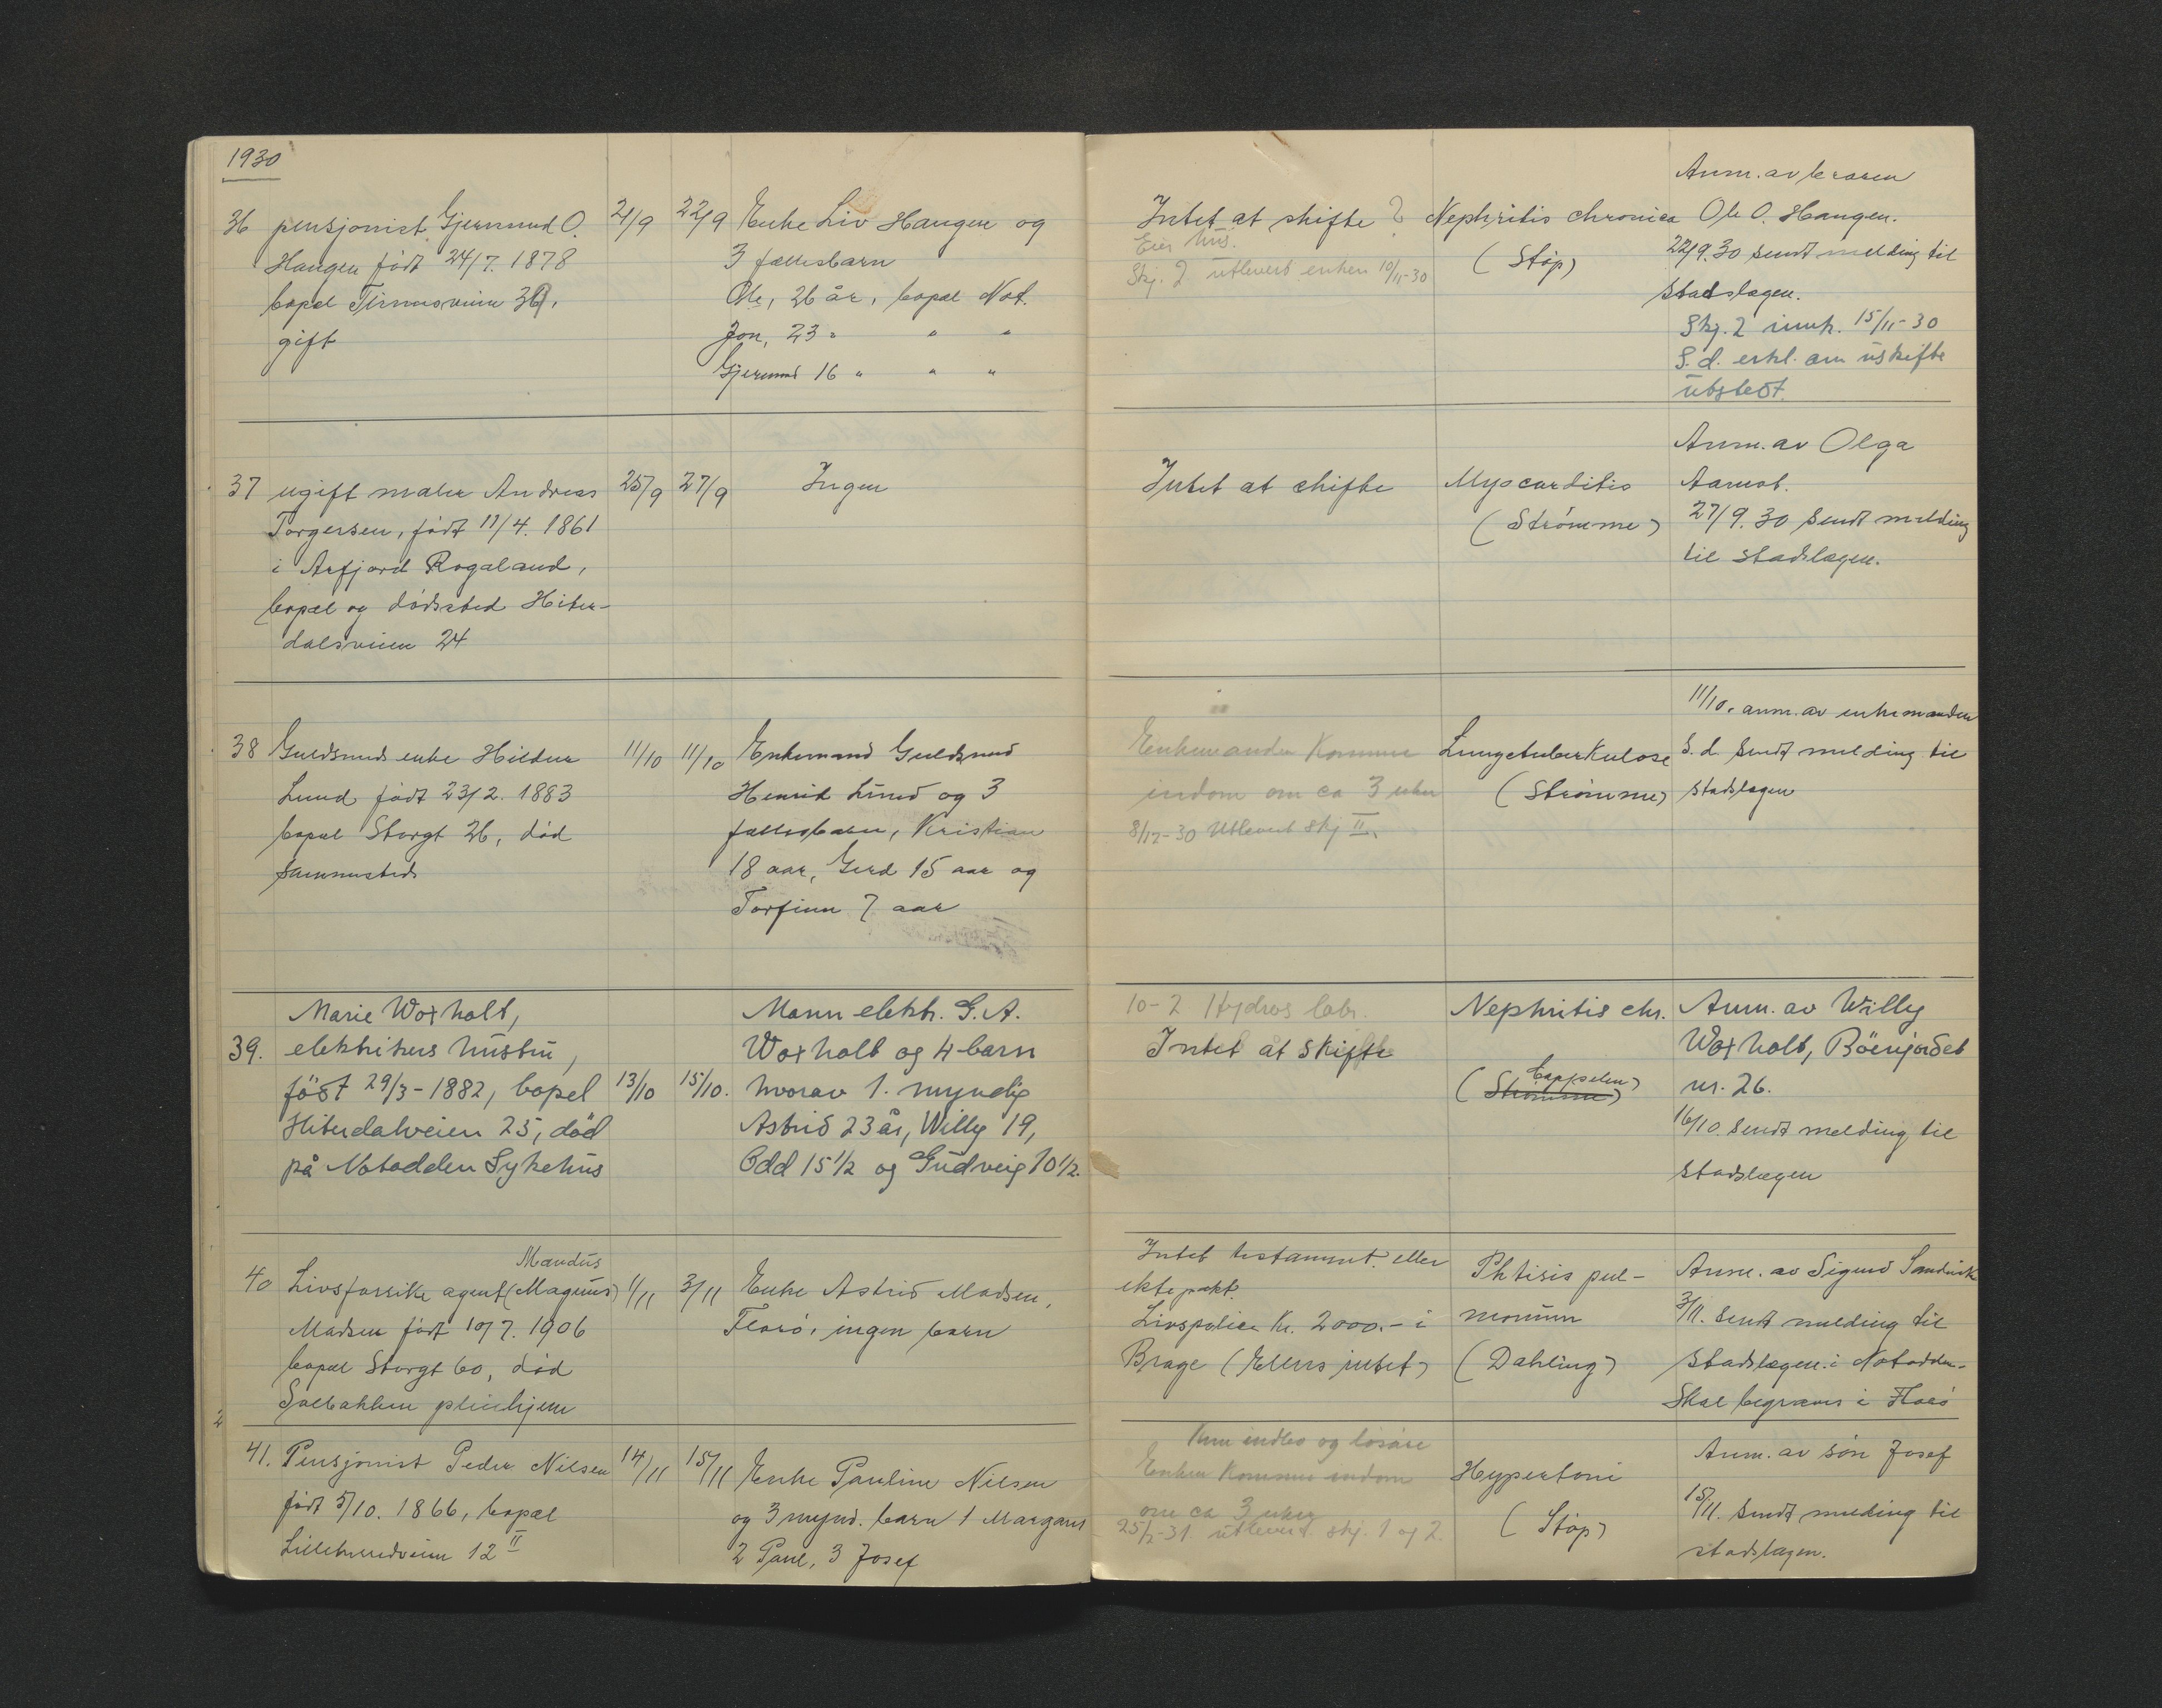 1930
36 pensjonist Gjermund O.
Haugen født 24/7. 1878
bopel Tinnesveien 39,
gift
21/9
22/9
Enke Liv Haugen og
3 fællesbarn
Ole, 26 år, bopæl Not.
Jon, 23 " " "
Gjermund 16 " " "
Intet at skifte ?
Eier hus.
Skj. 2 utlevert enken 10/11-30
Nephritis chronica
(Støp)
Anm. av broren
Ole O. Haugen.
22/9.30 sendt melding til
stadslægen.
Skj. 2 innk. 15/11-30
S.d. erkl. om uskifte
utstedt.
37 ugift maler Andreas
Torgersen, født 11/4. 1861
i Aafjord Rogaland,
bopæl og dødssted Hiter-
dalsveien 24
25/9
27/9
Ingen
Intet at skifte
Myocarditis
(Strømme)
Anm. av Olga
Aamot.
27/9.30 sendt melding
til stadslægen.
38 Guldsmeds enke Hildur
Lund født 23/2. 1883
bopæl Storgt 26, død
sammesteds
11/10
11/10
Enkemand Guldsmed
Henrik Lund og 3
fællesbarn, Kristian
18 aar, Gerd 15 aar og
Torfinn 7 aar
Enkemanden kommer
indom om ca 3 uker
8/12-30 Utlevert skj II.
Lungetuberkulose
(Strømme)
11/10. anm. av enkemanden
S.d. sendt melding til
stadslægen
39. Marie Woxholt,
elektrikers hustru,
født 29/3-1882, bopel
Hiterdalveien 25, død
på Notodden Sykehus
13/10
15/10.
Mann elektr. G.A.
Woxholt og 4 barn
hvorav 1. myndig
Astrid 23 år, Willy 19,
Odd 15 1/2 og Gudveig 10 1/2.
10-2 Hydros labr.
Intet at skifte
Nephritis chr.
Cappelen)
(Strømme)
Anm. av Willy
Woxholt, Böenjordet
nr. 26.
16/10. sendt melding til
stadslægen
Mandus
40 Livsforsikr agent (Magnus)
Madsen født 10/7. 1906
bopæl Storgt 60, død
Solbakken pleiehjem
1/11
3/11
Enke Astrid Madsen,
Florö, ingen barn
Intet testament. eller
ektepakt.
Livspolice kr. 2000.- i
Brage (Ellers intet)
Phtisis pul-
monum
(Dahling)
Anm. av Sigurd Sandvik
3/11. sendt melding til
stadslægen i Notodden-
Skal begraves i Florö
41. Pensjonist Peder Nilsen
født 5/10. 1866, bopæl
Lilleherredveien 12 II
14/11
15/11
Enke Pauline Nilsen
og 3 mynd. barn 1 Margarit
2 Paul, 3 Josef
Kun indbo og losöre
Enken kommer indom
om ca 3 uker
25/2-31. utlevert. skj. 1 og 2.
Hypertoni
(Støp)
Anm. av sön Josef
15/11. sendt melding til
stadslægen.